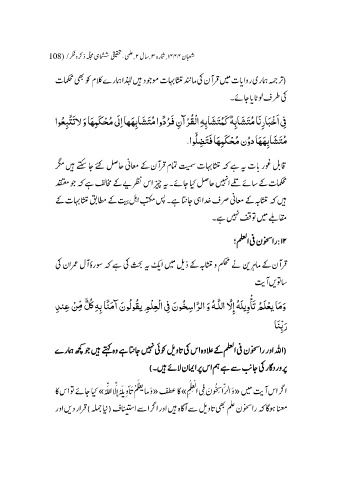 شعبان ۱۴۴۴، شمارہ ۳، سال ۲، علمی۔ تحقیقی ششماہی مجلہ ذکر و فکر / (108
(ترجمہ ہماری روایات میں قرآن کی مانند متشابہات موجود ہیں لہٰذا ہمارے کلام کو بھی محکمات
کی طرف لوٹایا جائے۔
فِي أَخْبَارِنَا مُتَشَابِهٌ كَمُتَشَابِهِ الْقُرْآنِ فَرُدُّوا مُتَشَابِهَهَا إِلَىٰ مُحْكَمِهَا وَ لَا تَتَّبِعُوا
مُتَشَابِهَهَا دُونَ مُحْكَمِهَا فَتَضِلُّوا۔
قابل غور بات یہ ہے کہ متشابہات سمیت تمام قرآن کے معانی حاصل کئے جا سکتے ہیں مگر
محکمات کے سائے تلے انہیں حاصل کیا جائے۔ یہ چیز اس نظریے کے مخالف ہے کہ جو معتقد
ہیں کہ متشابہ کے معانی صرف خدا ہی جانتا ہے۔ پس مکتب اہل بیت کے مطابق متشابہات کے
مقابلے میں توقف نہیں ہے۔
۱۲: راسخون فی العلم:
قرآن کے ماہرین نے محکم و متشابہ کے ذیل میں ایک یہ بحث کی ہے کہ سورۂ آل عمران کی
ساتویں آیت
وَمَا يَعْلَمُ تَأْوِيلَهُ إِلَّا اللَّهُ وَ الرَّاسِخُونَ فِي الْعِلْمِ يَقُولُونَ آمَنَّا بِهِ كُلٌّ مِّنْ عِندِ
رَبِّنَا
(اللہ اور راسخون فی العلم کے علاوہ اس کی تاویل کوئی نہیں جانتا ہے وہ کہتے ہیں جو کچھ ہمارے
پروردگار کی جانب سے ہے ہم اس پر ایمان لائے ہیں۔)
اگر اس آیت میں «وَ الرَّاسِخُونَ فِي الْعِلْمِ» کا عطف «وَ مَا يَعْلَمُ تَأْوِيلَهُ إِلَّا اللَّهُ» کیا جائے تو اس کا
معنا ہوگا کہ راسخون علم بھی تاویل سے آگاہ ہیں اور اگر اسے استیناف (نیا جملہ) قرار دیں اور